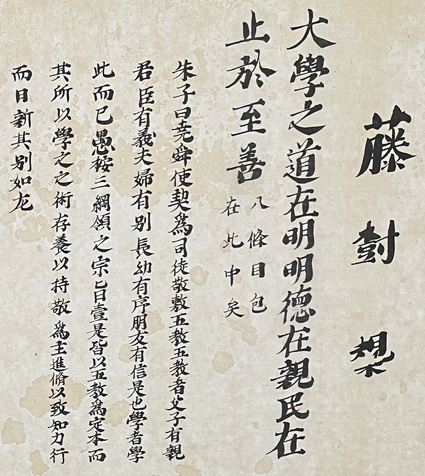 藤樹槼
大學之道在明明德在親民在
止於至善
八條目包
在此中矣
朱子曰尭舜使契爲司徒敬敷五教五教者父子有親
君臣有義夫婦有別長幼有序朋友有信是也學者學
此而已愚按三綱領之宗旨壹是皆以五教爲定本而
其所以學之之術存養以持敬爲主進脩以致知力行
而日新其別如左